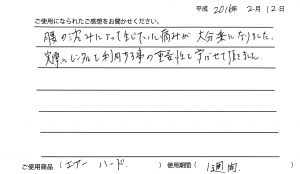 平成 2016年 2月 12日
ご使用になられたご感想をお聞かせください。
腰の沈みによって生じていた痛みが 大分楽になりました。
実際にレンタルを利用する事の重要性を学ばせて頂きました。
ご使用商品 (エアー ハード ) 使用期間( 1週間 )